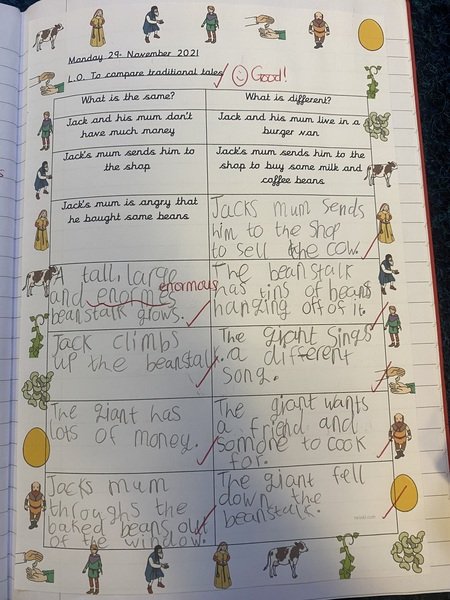 Monday 29. November 2021
L.O. To compare traditional tales
Good!
What is the same?
What is different?
Jack and his mum don't
have much money
Jack and his mum live in a
burger van
Jack's mum sends him to
the shop
Jack's mum sends him to the
shop to buy some milk and
coffee beans
Jack's mum is angry that
he bought some beans
Jacks mum sends
him to the shop
to sell the cow.
A tall, large
and enormes
enormous
beanstalk grows.
The beanstalk
has tins of beans
hanging off of it.
Jack climbs
up the beanstalk.
The giant sings
a different
song.
The giant has
lots of money.
The giant wants
a friend and
somone to cook
for.
Jacks mum
throughs the
baked beans out
of the window.
The giant fell
down the
beanstalk.